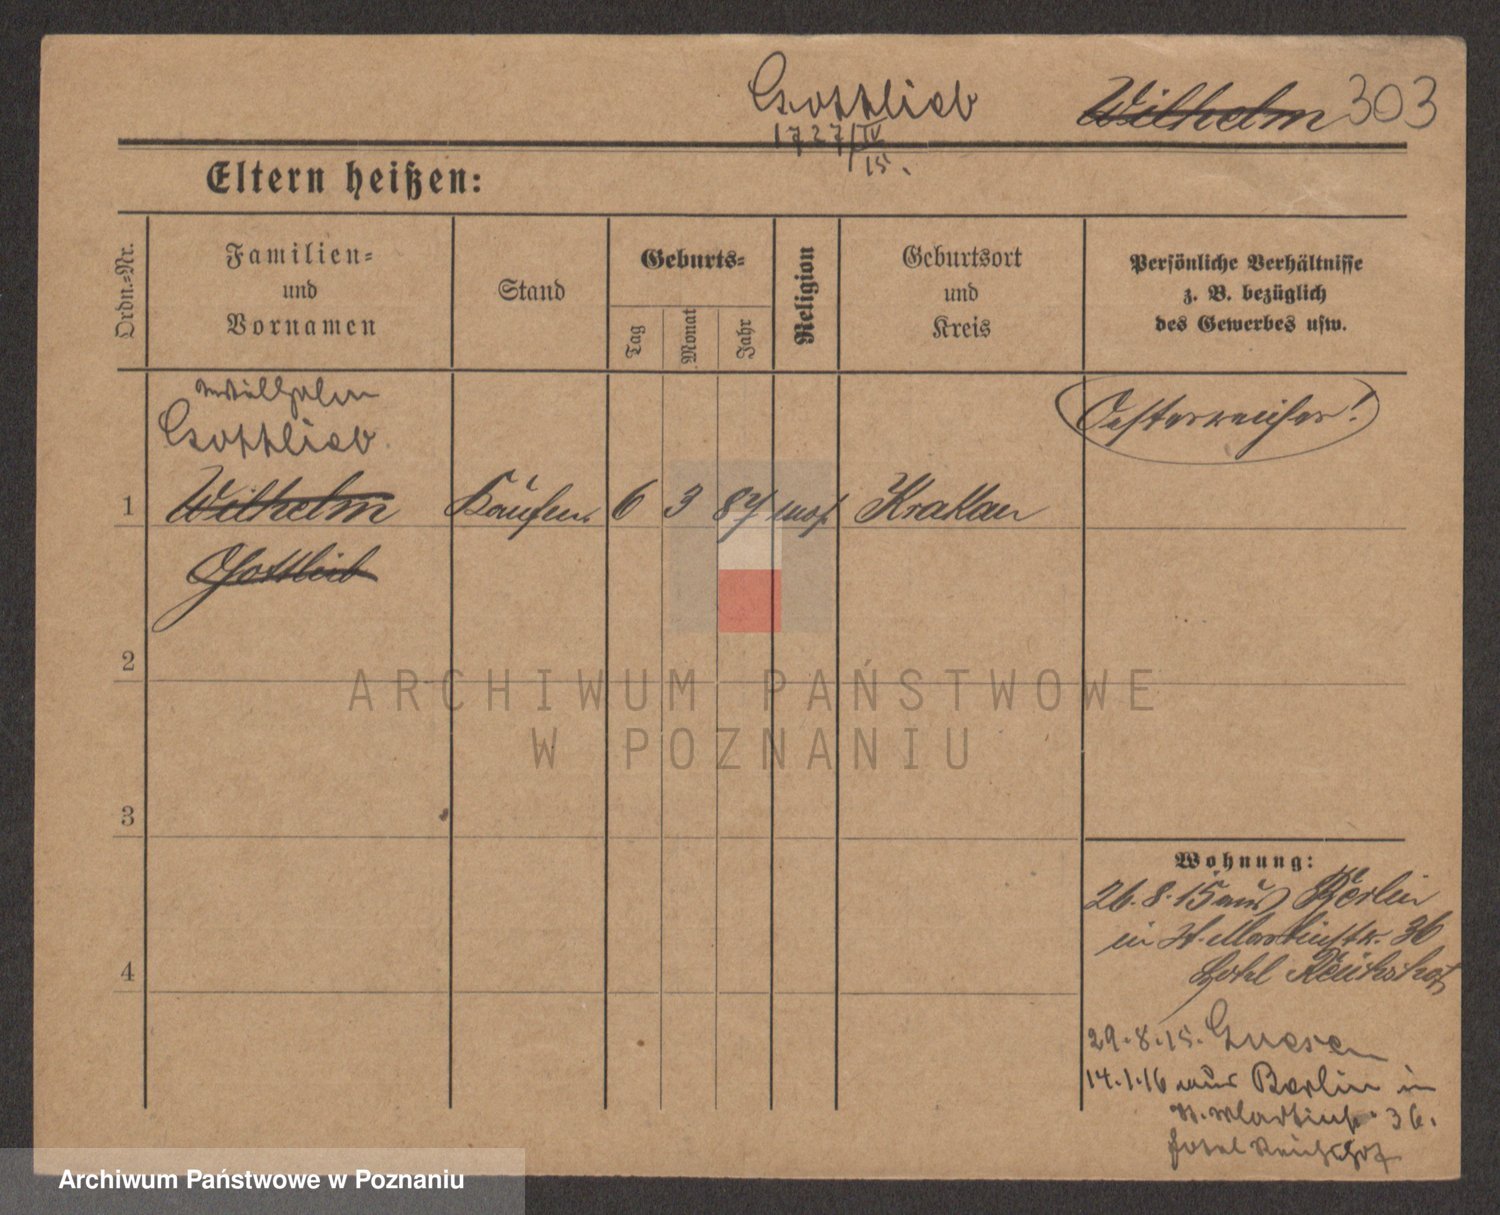 Gottlieb Wilhelm 303
1727/IV
15.
Eltern heißen:
Ordn.=Nr.
Familien=
und
Vornamen
Stand
Geburts=
Tag
Monat
Jahr
Religion
Geburtsort
und
Kreis
Persönliche Verhältnisse
z. B. bezüglich
des Gewerbes usw.
Wilhelm
Gottlieb
1 Wilhelm Kaufm. 6 3 87 mos. Krakau
Oesterreicher!
Gottlieb
2
3
4
ARCHIWUM PAŃSTWOWE
W POZNANIU
Wohnung:
26.8.15 aus Berlin
in St. Martinstr. 36
Hotel Reichshof
29.8.15. Gnesen
14.1.16 aus Berlin in
St. Martinstr. 36.
Hotel Reichshof
Archiwum Państwowe w Poznaniu